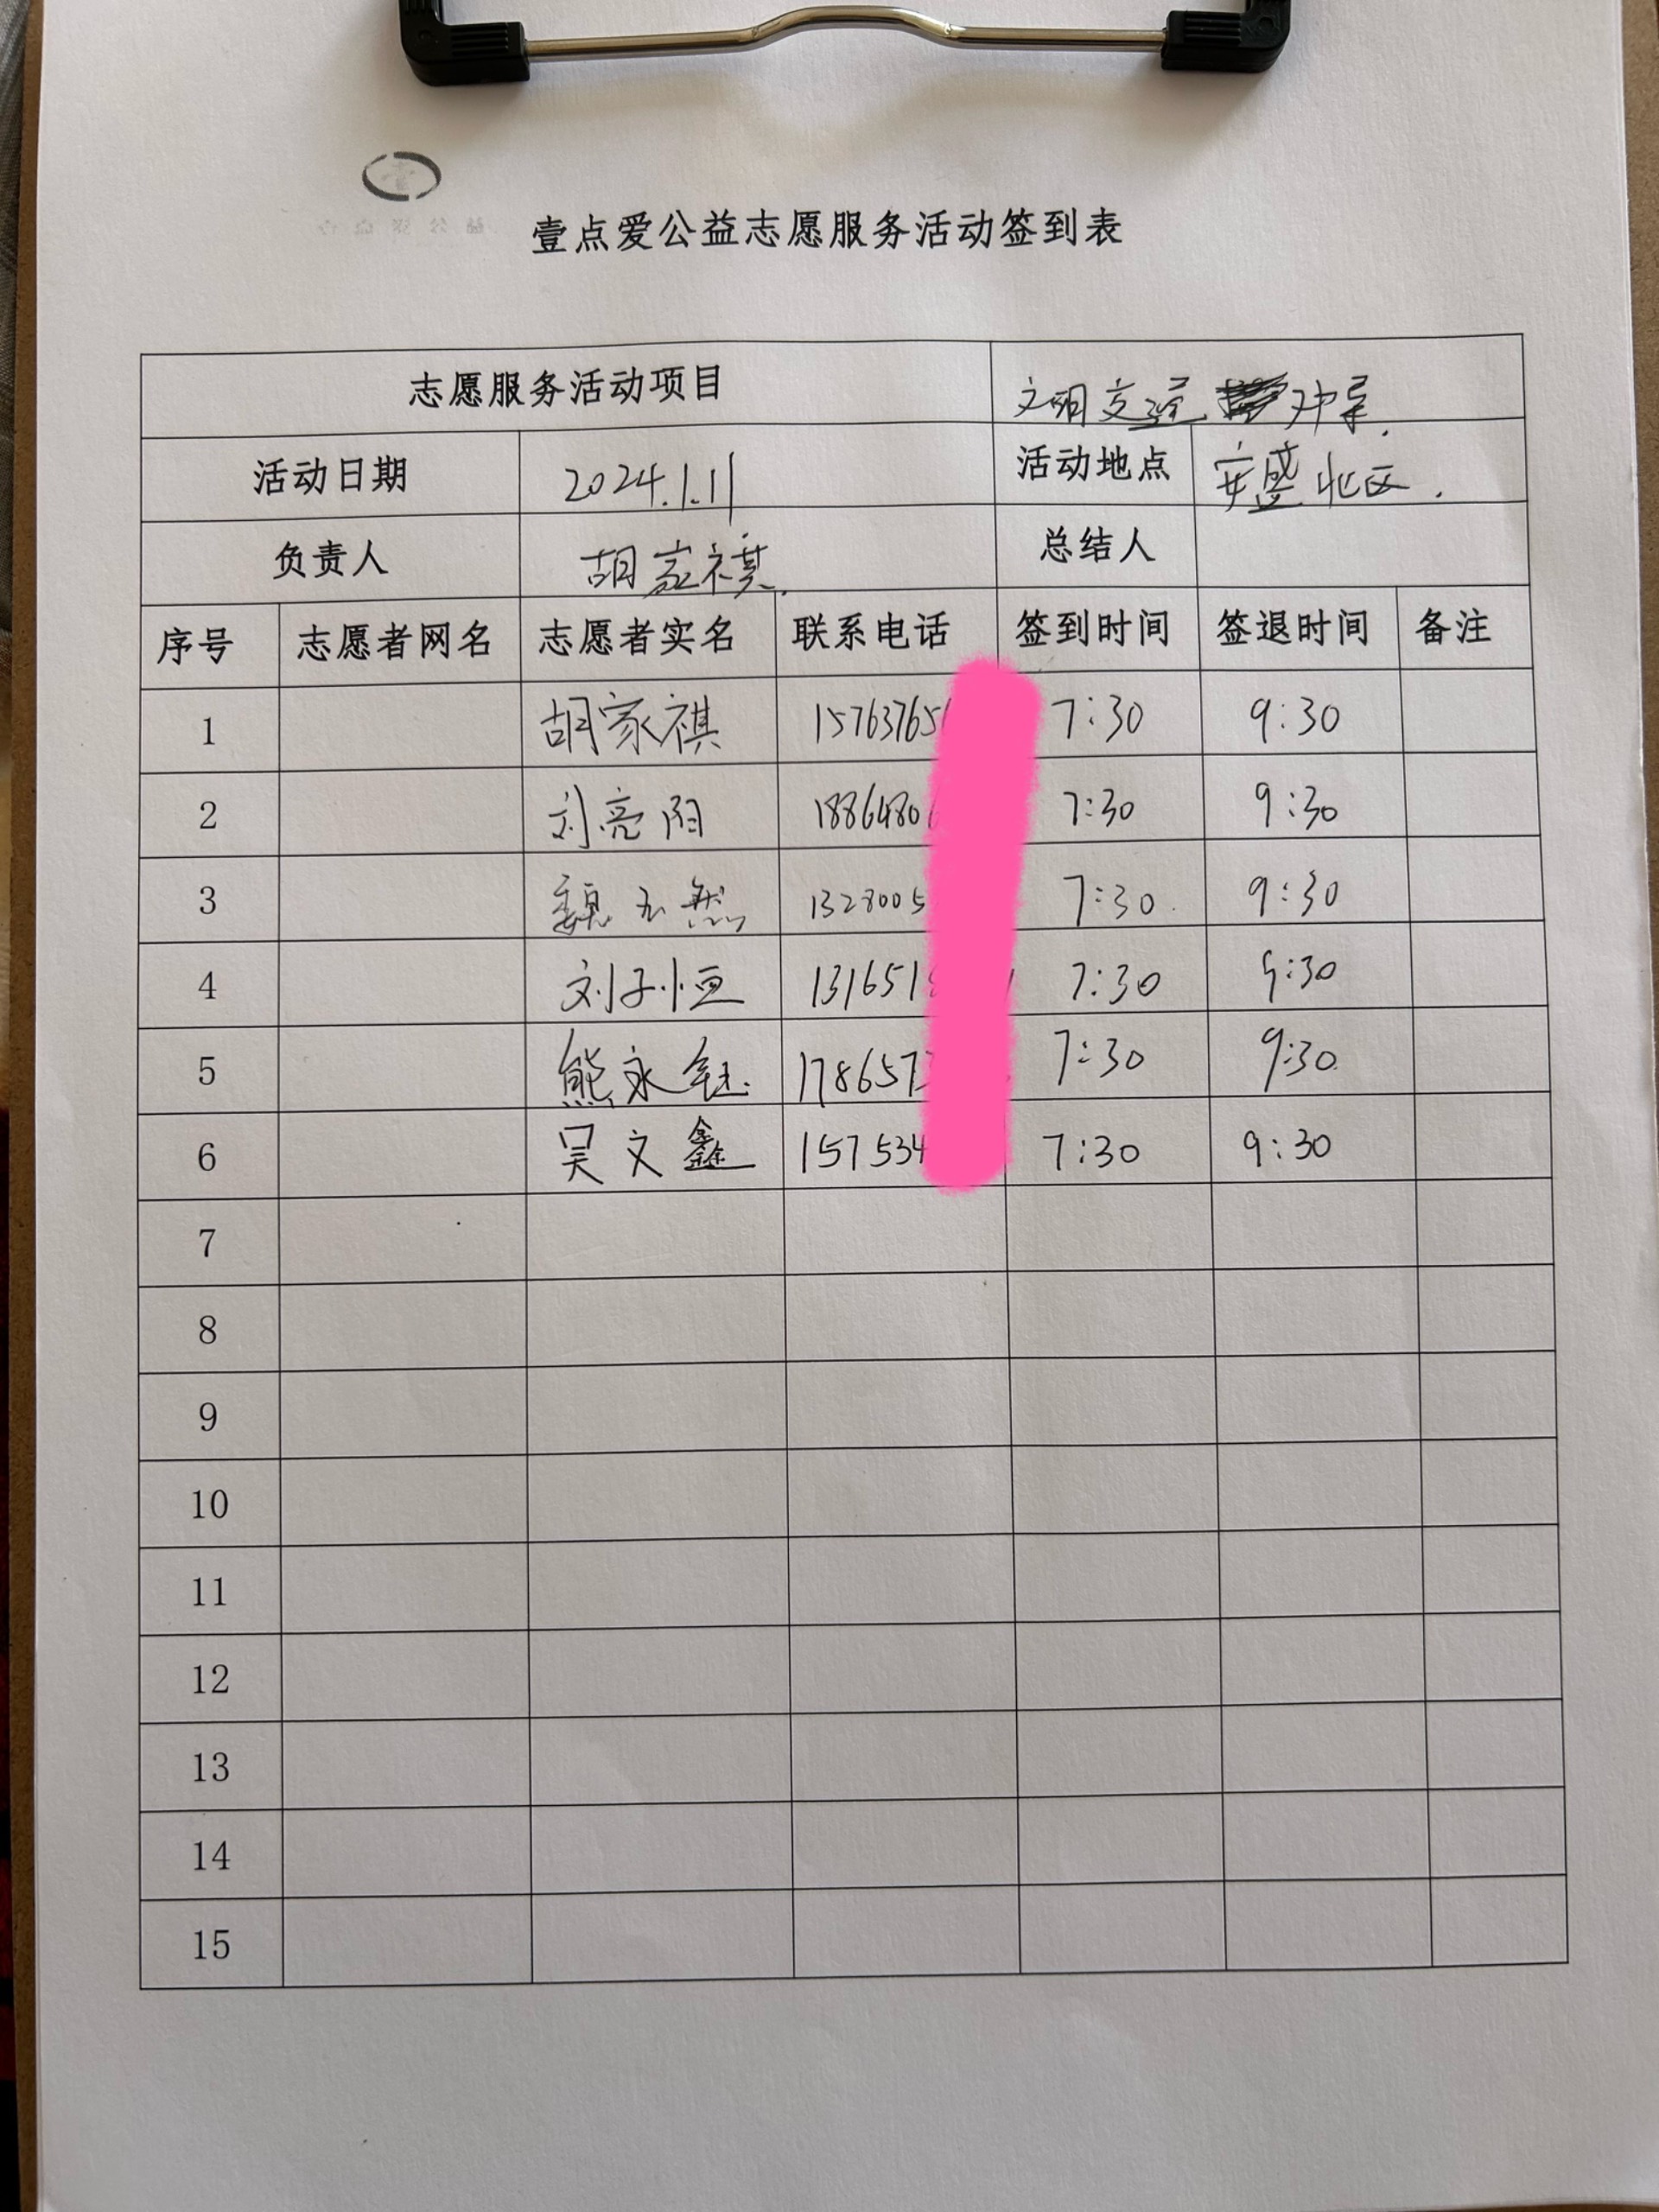 壹点爱公益志愿服务活动签到表
志愿服务活动项目 文明交通 冲导
活动日期 2024.1.11 活动地点 安盛北区.
负责人 胡家祺. 总结人
序号 志愿者网名 志愿者实名 联系电话 签到时间 签退时间 备注
1 胡家祺 15763765 7:30 9:30
2 刘亮阳 1886480 7:30 9:30
3 魏 然 1328005 7:30. 9:30
4 刘子恒 131651 7:30 9:30
5 熊永钰. 178657 7:30 9:30.
6 吴文鑫 157534 7:30 9:30
7
8
9
10
11
12
13
14
15